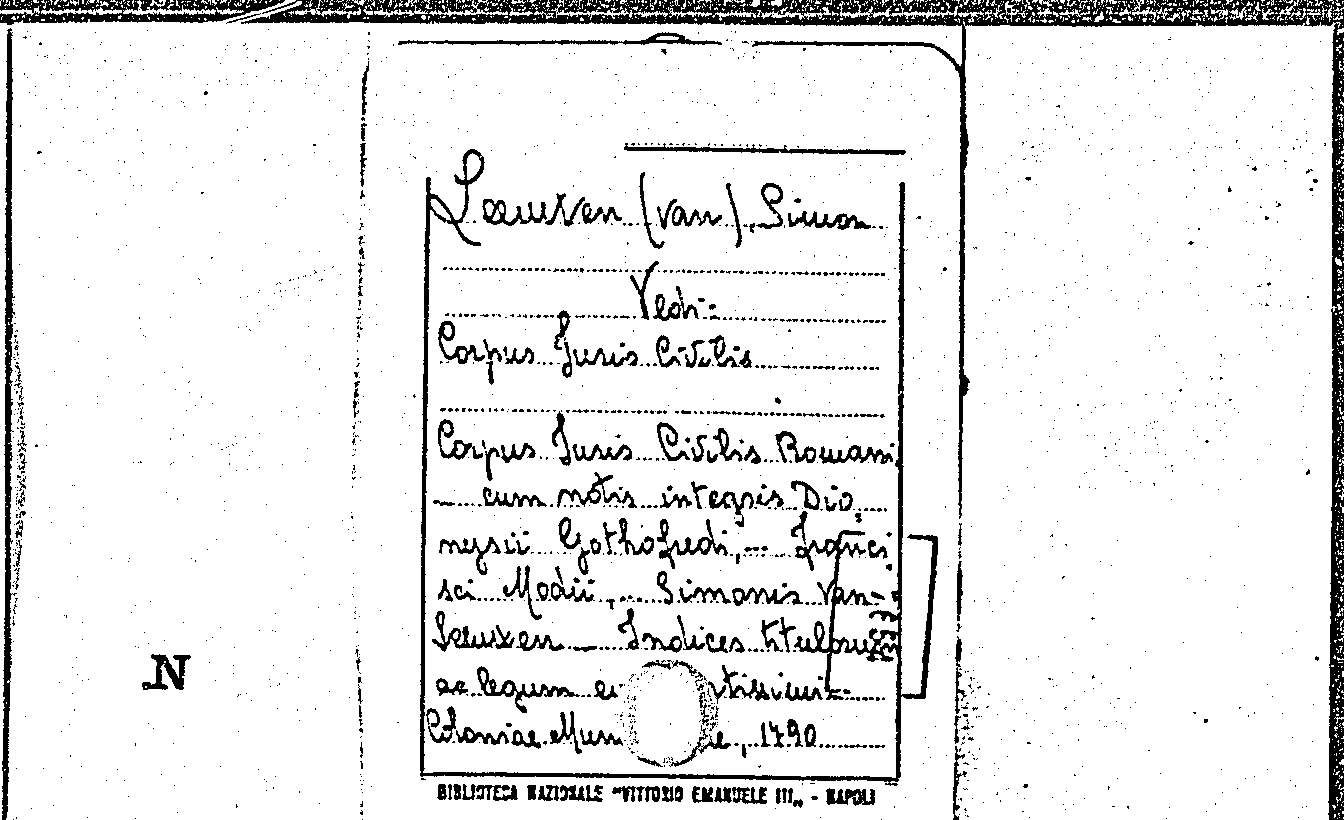 Leeuwen (van), Simon
Vedi:
Corpus Juris Civilis
Corpus Juris Civilis Romani
— cum notis integris Dio
nysii Gothofredi, — Franci
sci Modii, — Simonis Van-
Leeuwen — Indices titulorum
ac legum
Coloniae 1790
.N
BIBLIOTECA NAZIONALE "VITTORIO EMANUELE III„ - NAPOLI